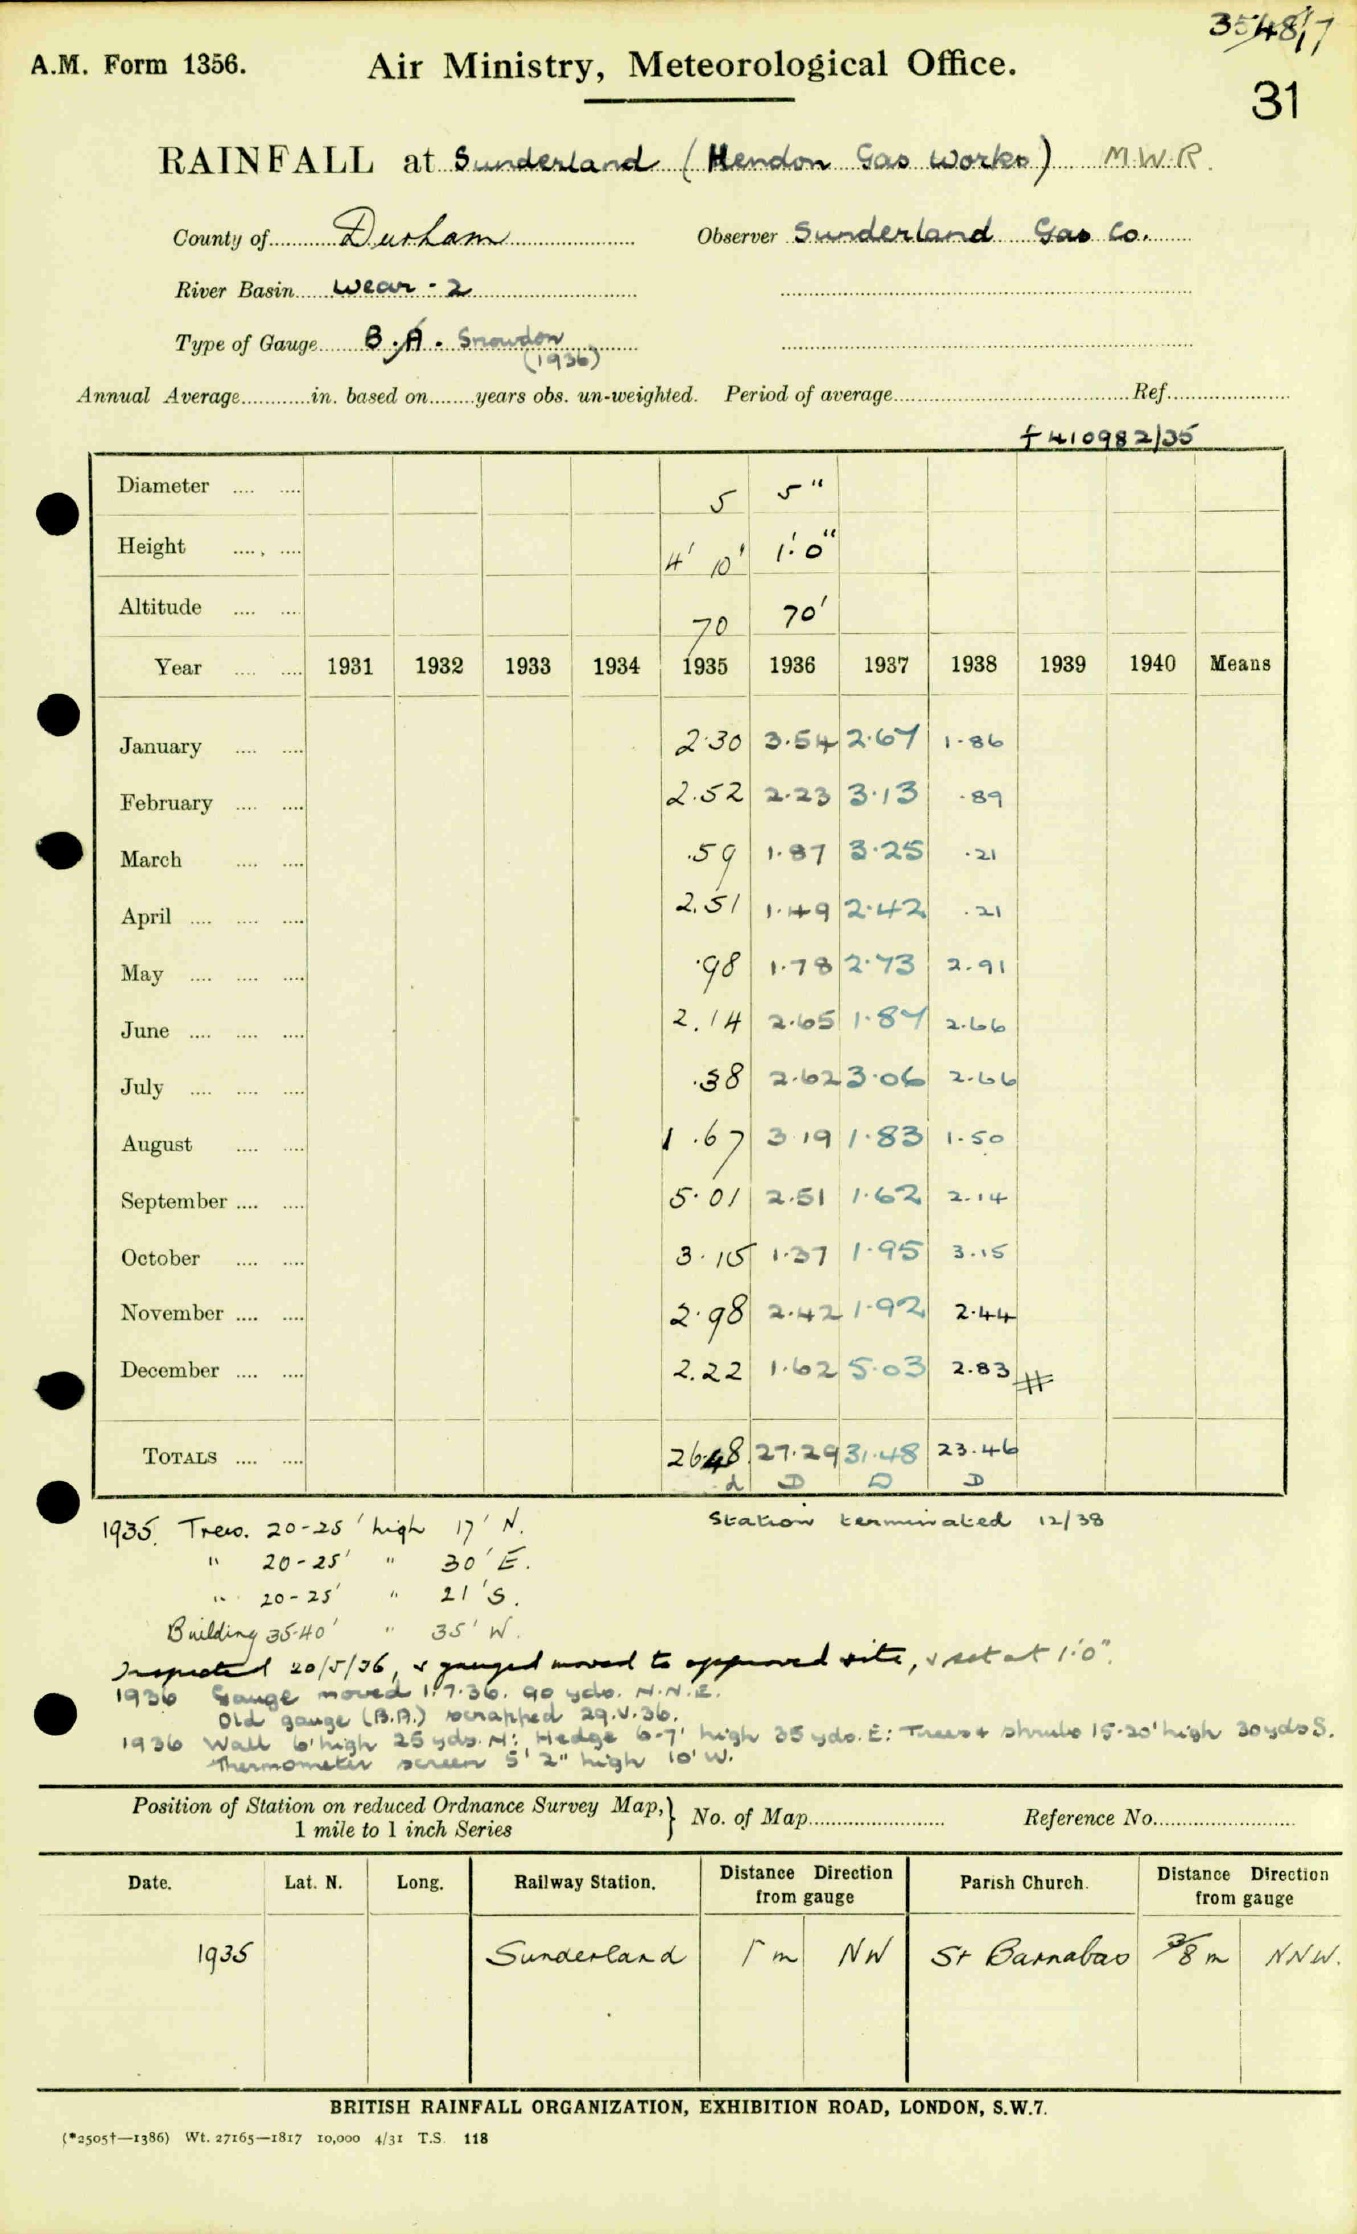 3548/7
A.M. Form 1356. Air Ministry, Meteorological Office.
31
RAINFALL at Sunderland (Hendon Gas Works) M.W.R.
County of Durham Observer Sunderland Gas Co.
River Basin Wear - 2
Type of Gauge B.A. Snowdon
(1936)
Annual Average in. based on years obs. un-weighted. Period of average Ref.
† 410982/35
Diameter 5 5"
Height 4' 10' 1'.0"
Altitude 70 70'
Year 1931 1932 1933 1934 1935 1936 1937 1938 1939 1940 Means
January 2.30 3.54 2.67 1.86
February 2.52 2.23 3.13 .89
March .59 1.87 3.25 .21
April 2.51 1.49 2.42 .21
May .98 1.78 2.73 2.91
June 2.14 2.65 1.87 2.66
July .38 2.62 3.06 2.66
August 1.67 3.19 1.83 1.50
September 5.01 2.51 1.62 2.14
October 3.15 1.37 1.95 3.15
November 2.98 2.42 1.92 2.44
December 2.22 1.62 5.03 2.83 #
TOTALS 26.48 27.29 31.48 23.46
d D D D
Station terminated 12/38
1935. Trees. 20-25' high 17' N.
" 20-25' " 30' E.
" 20-25' " 21' S.
Building 35-40' " 35' W.
Inspected 20/5/36, & gauged moved to approved site, & set at 1'.0".
1936 Gauge moved 1.7.36. 90 yds. N.N.E.
Old gauge (B.A.) scrapped 29.V.36.
1936 Wall 6' high 25 yds. N: Hedge 6-7' high 35 yds. E: Trees & shrubs 15-20' high 30 yds S.
Thermometer screen 5' 2" high 10' W.
Position of Station on reduced Ordnance Survey Map, 1 mile to 1 inch Series } No. of Map Reference No.
Date. Lat. N. Long. Railway Station. Distance Direction from gauge Parish Church. Distance Direction from gauge
1935 Sunderland 1 m NW St Barnabas 3/8 m NNW.
BRITISH RAINFALL ORGANIZATION, EXHIBITION ROAD, LONDON, S.W.7.
(*2505†—1386) Wt. 27165—1817 10,000 4/31 T.S. 118